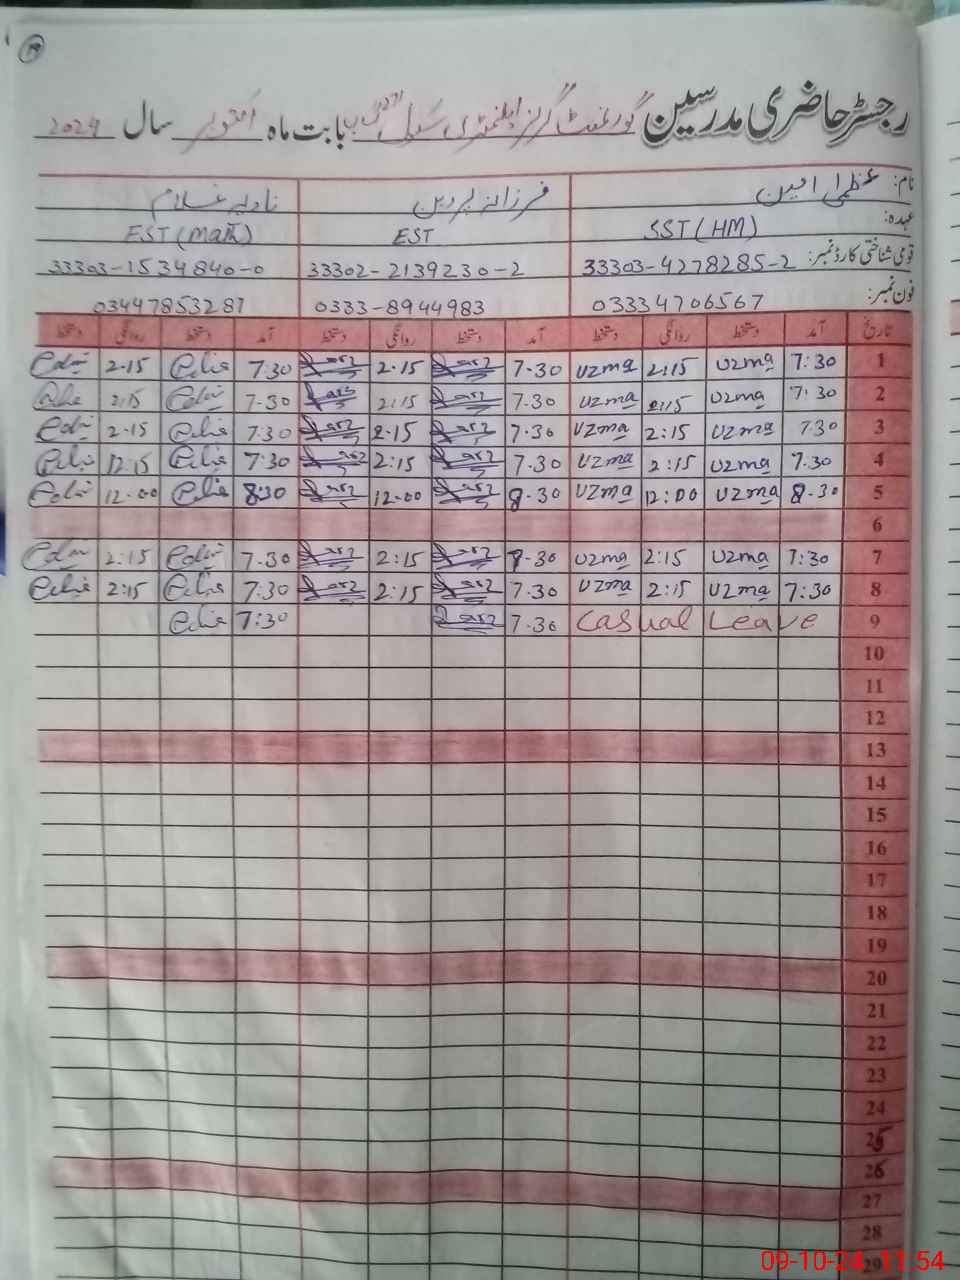 رجسٹر حاضری مدرسین گورنمنٹ گرلز ایلیمنٹری سکول بابت ماہ اکتوبر سال 2024
نام: عظمیٰ امین فرزانہ پروین نادیہ غلام
عہدہ: SST (HM) EST EST (Math)
قومی شناختی کارڈ نمبر: 33303-4278285-2 33302-2139230-2 33303-1534840-0
فون نمبر: 03334706567 0333-8944983 03447853287
تاریخ آمد دستخط روانگی دستخط آمد دستخط روانگی دستخط آمد دستخط روانگی دستخط
1 7:30 uzma 2:15 uzma 7.30 2.15 7:30 2.15
2 7:30 uzma 2:15 uzma 7.30 2:15 7.30 2:15
3 7.30 uzma 2:15 uzma 7.30 2.15 7:30 2.15
4 7.30 uzma 2:15 uzma 7.30 2:15 7:30 12:15
5 8.30 uzma 12:00 uzma 8.30 12.00 8:30 12.00
6
7 7:30 uzma 2:15 uzma 7.30 2:15 7.30 2:15
8 7:30 uzma 2:15 uzma 7.30 2:15 7:30 2:15
9 Casual Leave 7.30 7:30
10
11
12
13
14
15
16
17
18
19
20
21
22
23
24
25
26
27
28
29
09-10-24, 11:54